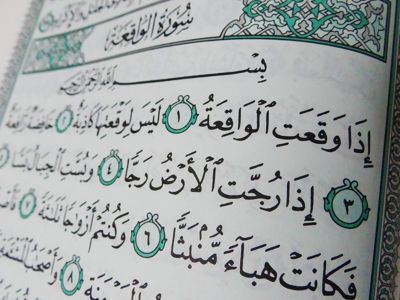 سُورَةُ الوَاقِعَةِ
بِسْمِ ٱللَّهِ ٱلرَّحْمَٰنِ ٱلرَّحِيمِ
إِذَا وَقَعَتِ ٱلْوَاقِعَةُ ١ لَيْسَ لِوَقْعَتِهَا كَاذِبَةٌ ٢ خَافِضَةٌ رَّافِعَةٌ
٣ إِذَا رُجَّتِ ٱلْأَرْضُ رَجًّا ٤ وَبُسَّتِ ٱلْجِبَالُ بَسًّا ٥
فَكَانَتْ هَبَآءً مُّنۢبَثًّا ٦ وَكُنتُمْ أَزْوَٰجًا ثَلَٰثَةً ٧
٨ وَأَصْحَٰبُ